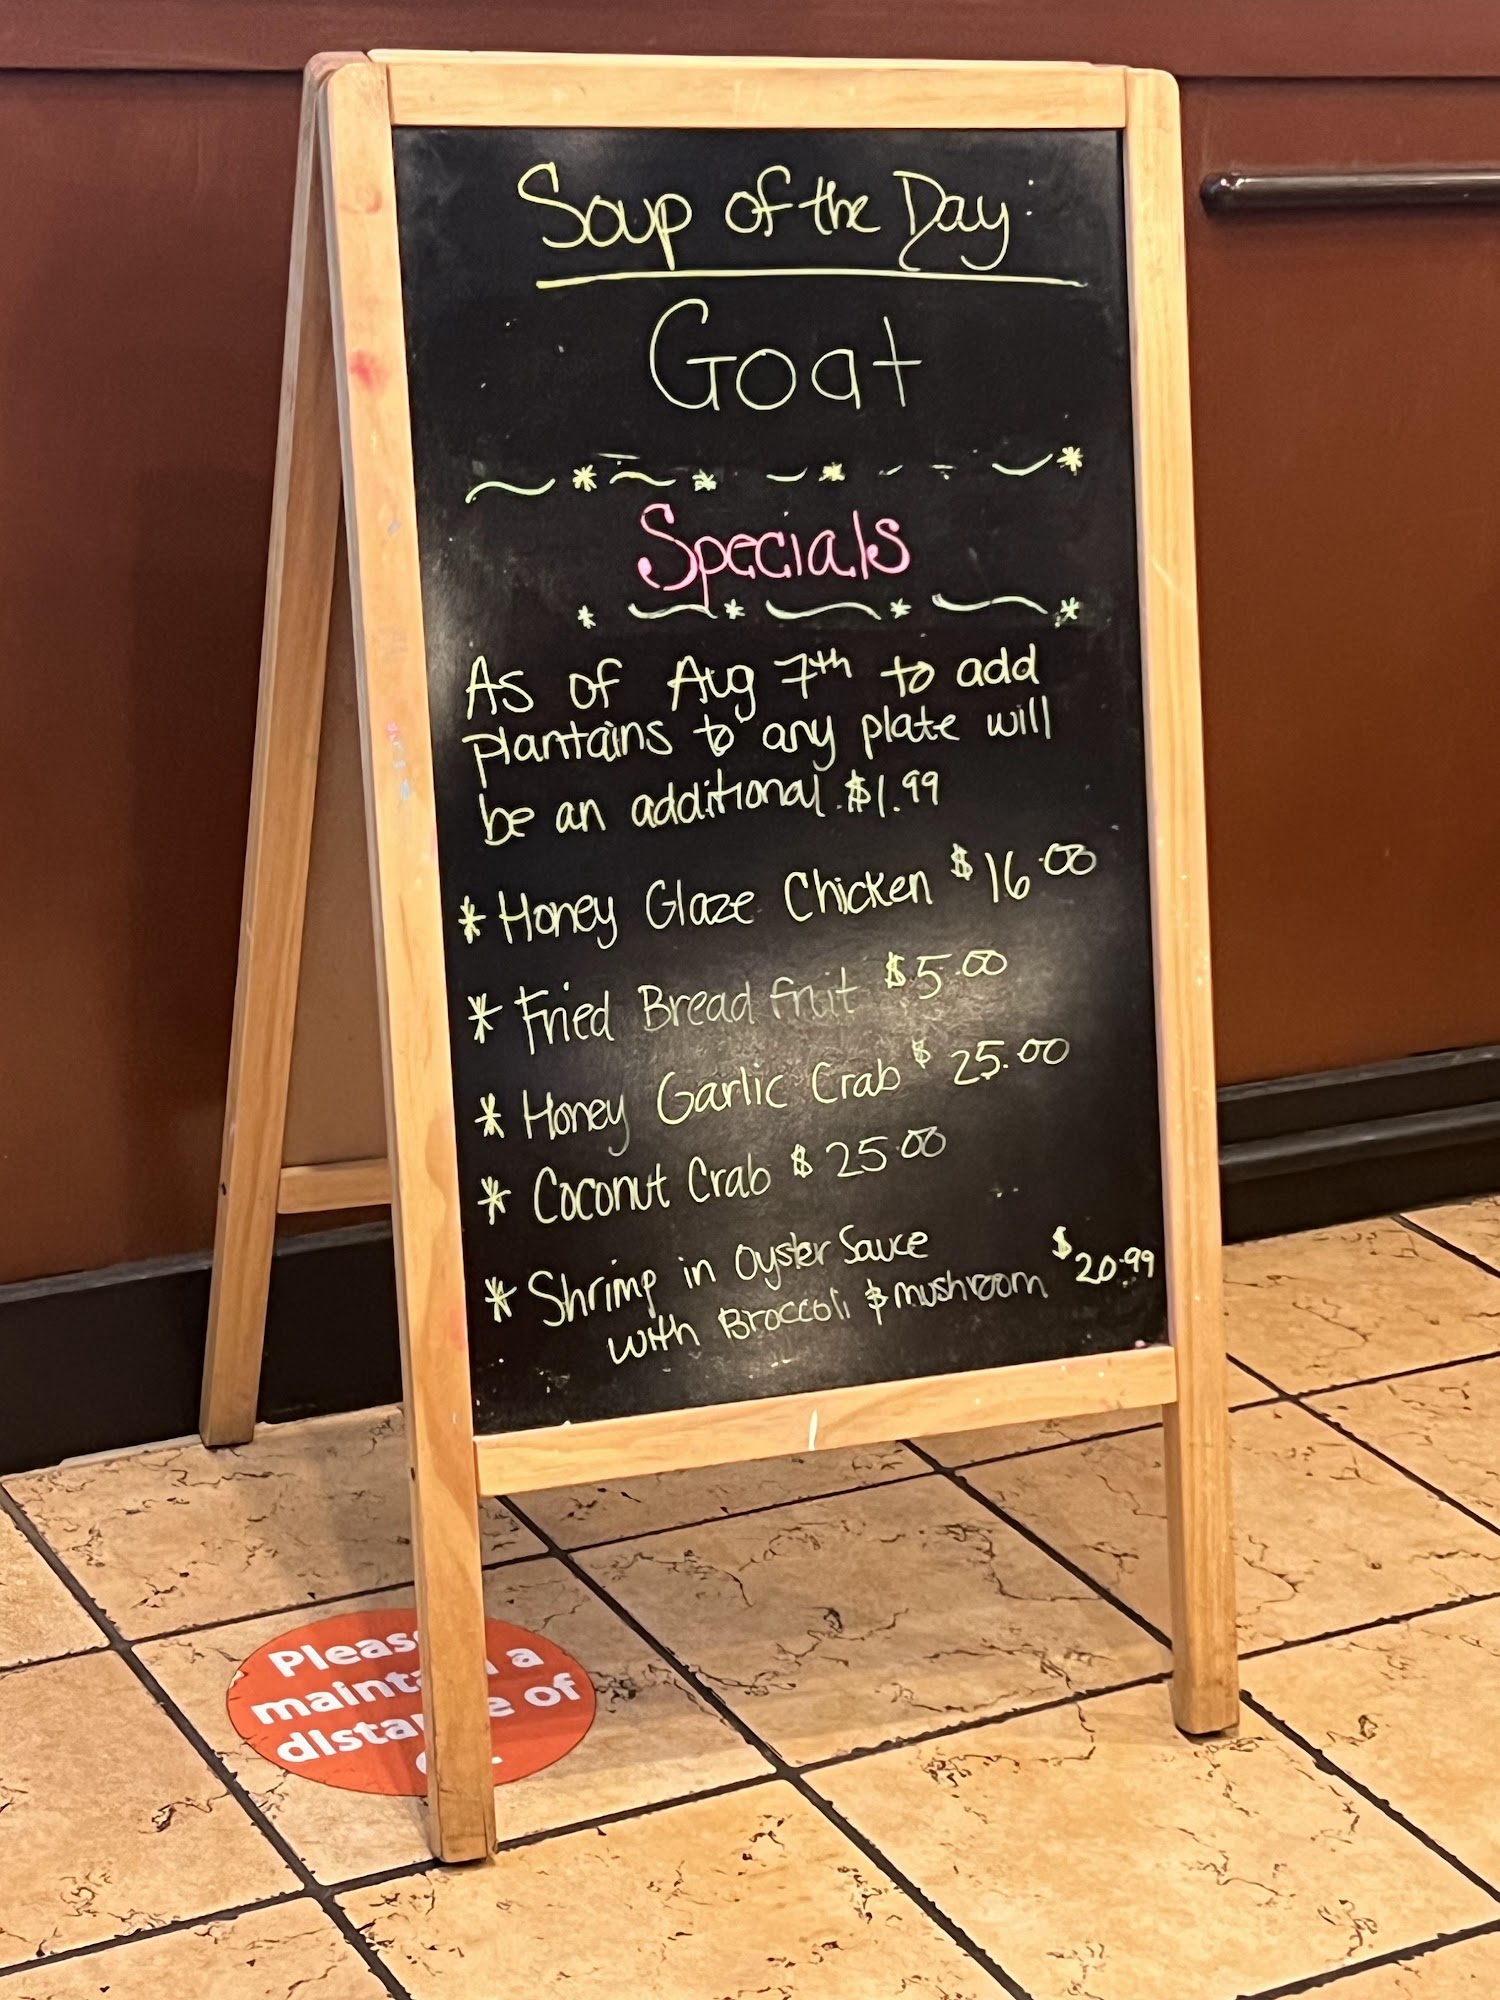 Soup of the Day:
Goat
Specials
As of Aug 7th to add
plantains to any plate will
be an additional $1.99
* Honey Glaze Chicken $16.00
* Fried Bread fruit $5.00
* Honey Garlic Crab $25.00
* Coconut Crab $25.00
* Shrimp in Oyster Sauce
with Broccoli & mushroom $20.99
Please
a
of